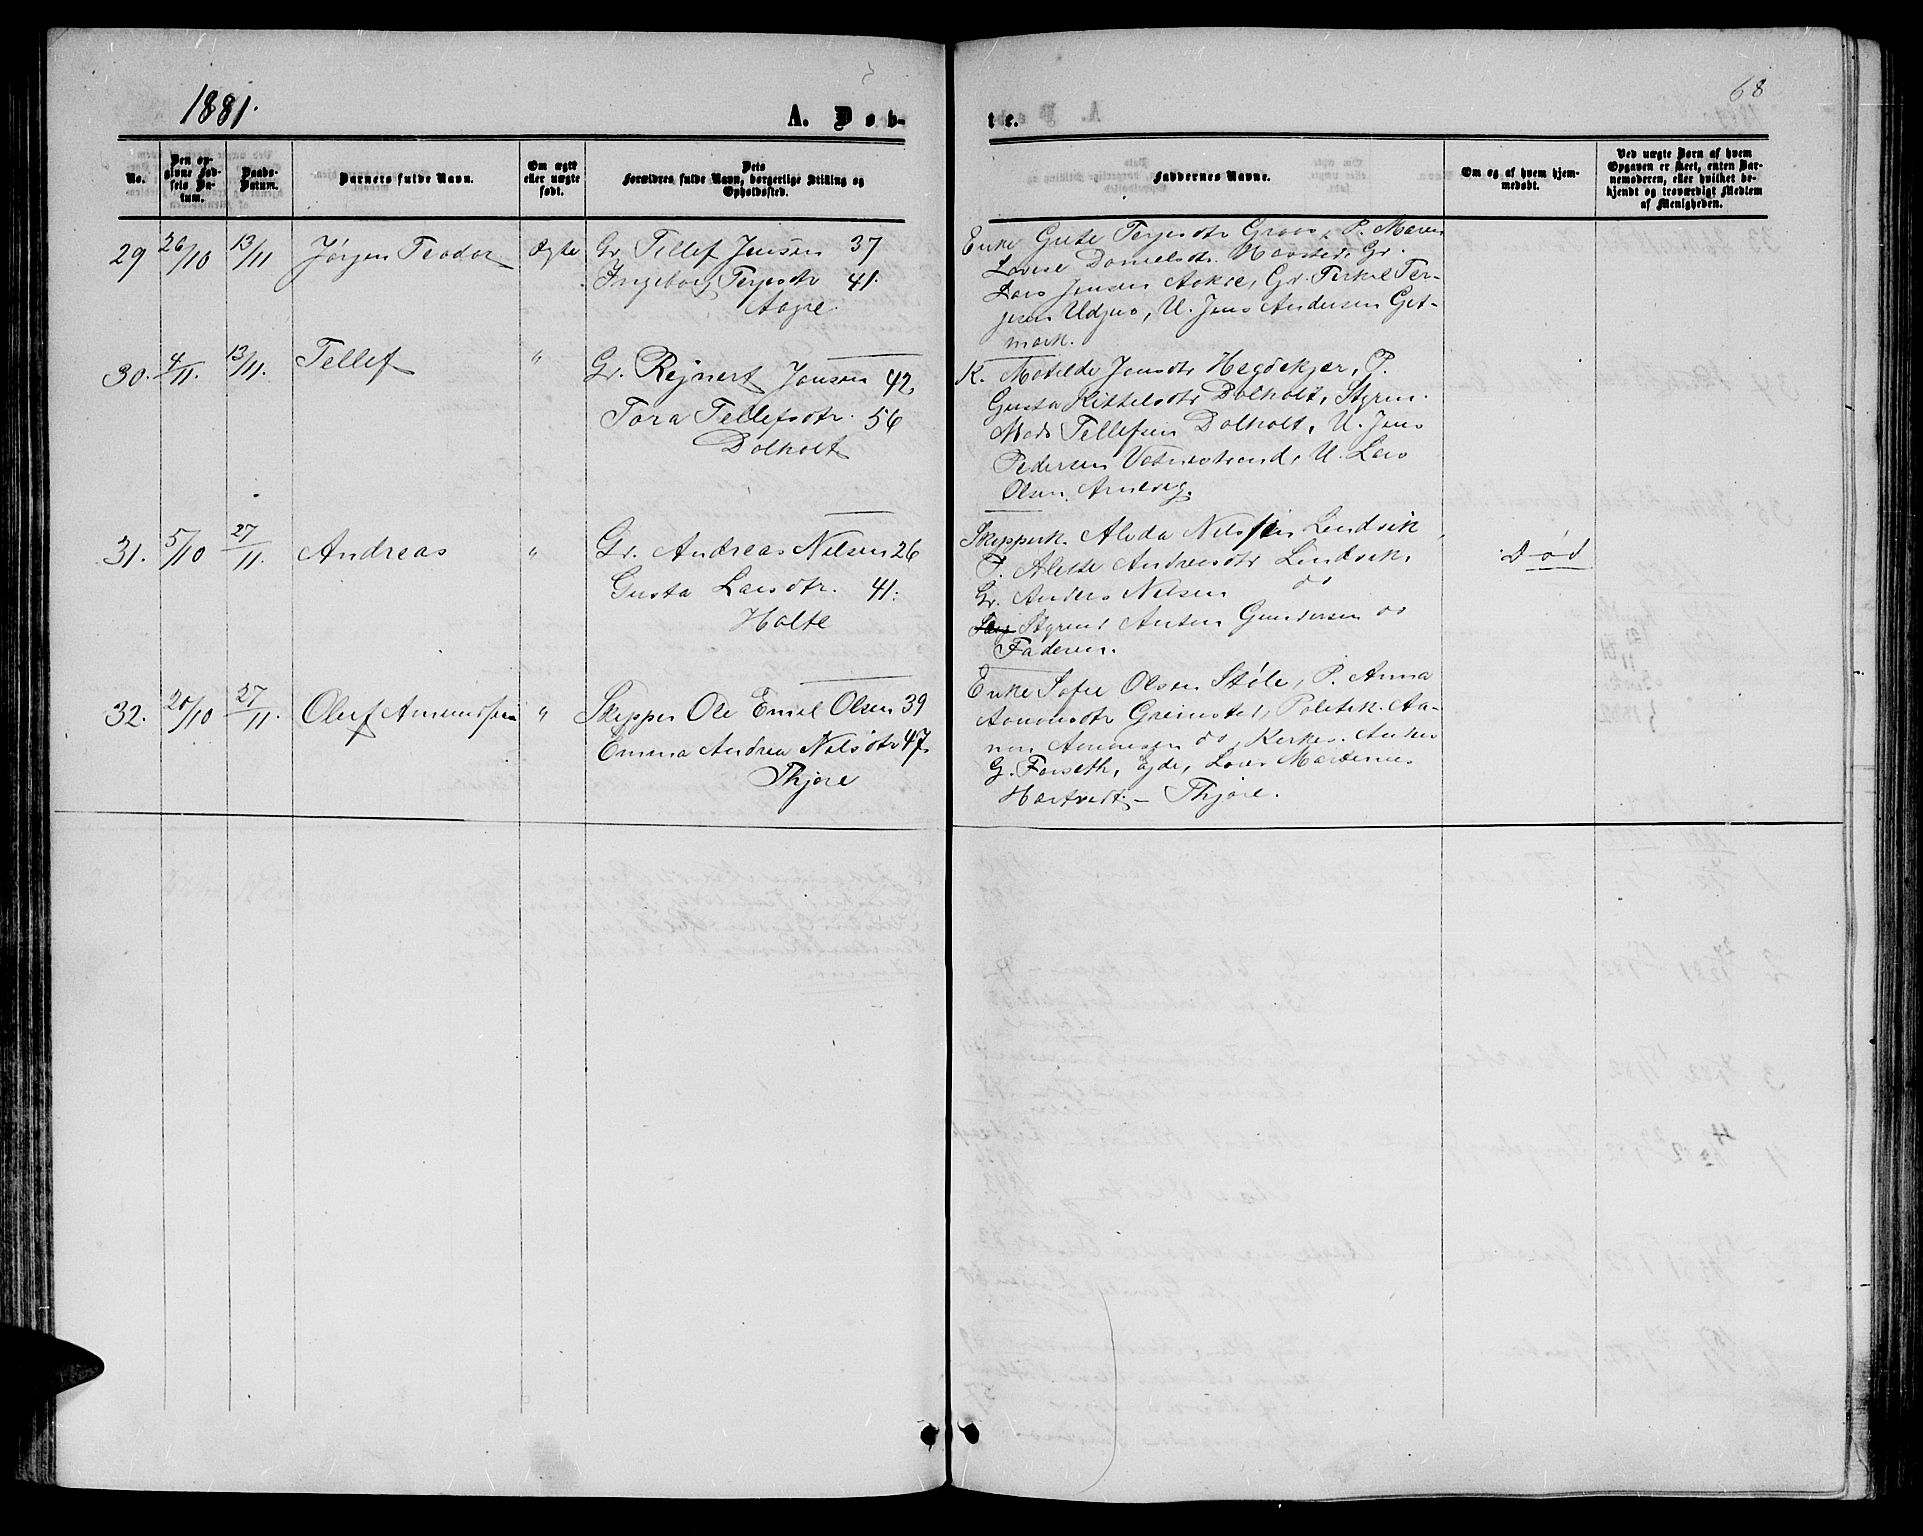 1881.
68
A. Døb-
te.
No.
Den op-
givne Fød-
sels Da-
tum.
Daabs-
Datum.
Barnets fulde Navn.
Om ægte
eller uægte
født.
Dets
Forældres fulde Navn, borgerlige Stilling og
Opholdssted.
Faddernes Navne.
Om og af hvem hjem-
medøbt.
Ved uægte Børn af hvem
Opgaven er skeet, enten Bar-
nemoderen, eller hvilket be-
kjendt og troværdigt Medlem
af Menigheden.
29 26/10 13/11 Jørgen Teodor Ægte
Gr. Tellef Jensen 37
Ingeborg Terjesdtr 41.
Enke Grete Terjesdtr Groos, P. Maren
Lovise Danielsdtr, Gr.
Lars Jensen, Gr. Terkel Ter-
jesen, U. Jens Andersen Get-
mark.
30. 4/11. 13/11. Tellef "
Gr. Rejnert Jensen 42,
Tora Tellefsdtr. 56
Dolholt
K. Matilde Jensdtr Hegdekjær, P.
Gusta Kittelsdtr Dolholt, Styrm.
Mads Tellefsen Dolholt, U. Jens
Pedersen Vatnestrand, U. Lars
Olsen Arnevig.
31. 5/10 27/11. Andreas "
Gr. Andreas Nilsen 26
Gusta Larsdtr. 41.
Holte
Skipperk. Aleda Nilssen Lindvik
P. Alette Andreasdtr Lindvik,
Gr. Anders Nilsen do
Styrmd Anten Gundersen do
Faderen.
Død
32. 20/10 27/11. Oluf Amundsen "
Skipper Ole Emil Olsen 39
Emma Andrea Nilsdtr 47,
Thjøre
Enke Sofie Olsen Støle, P. Anna
Aanonsdtr Grimsted, Politik. Aa-
non Aanonsen do, Kirkes. Anders
G. Forseth, Eide, Lovis Martinius
Hartvedt - Thjøre.